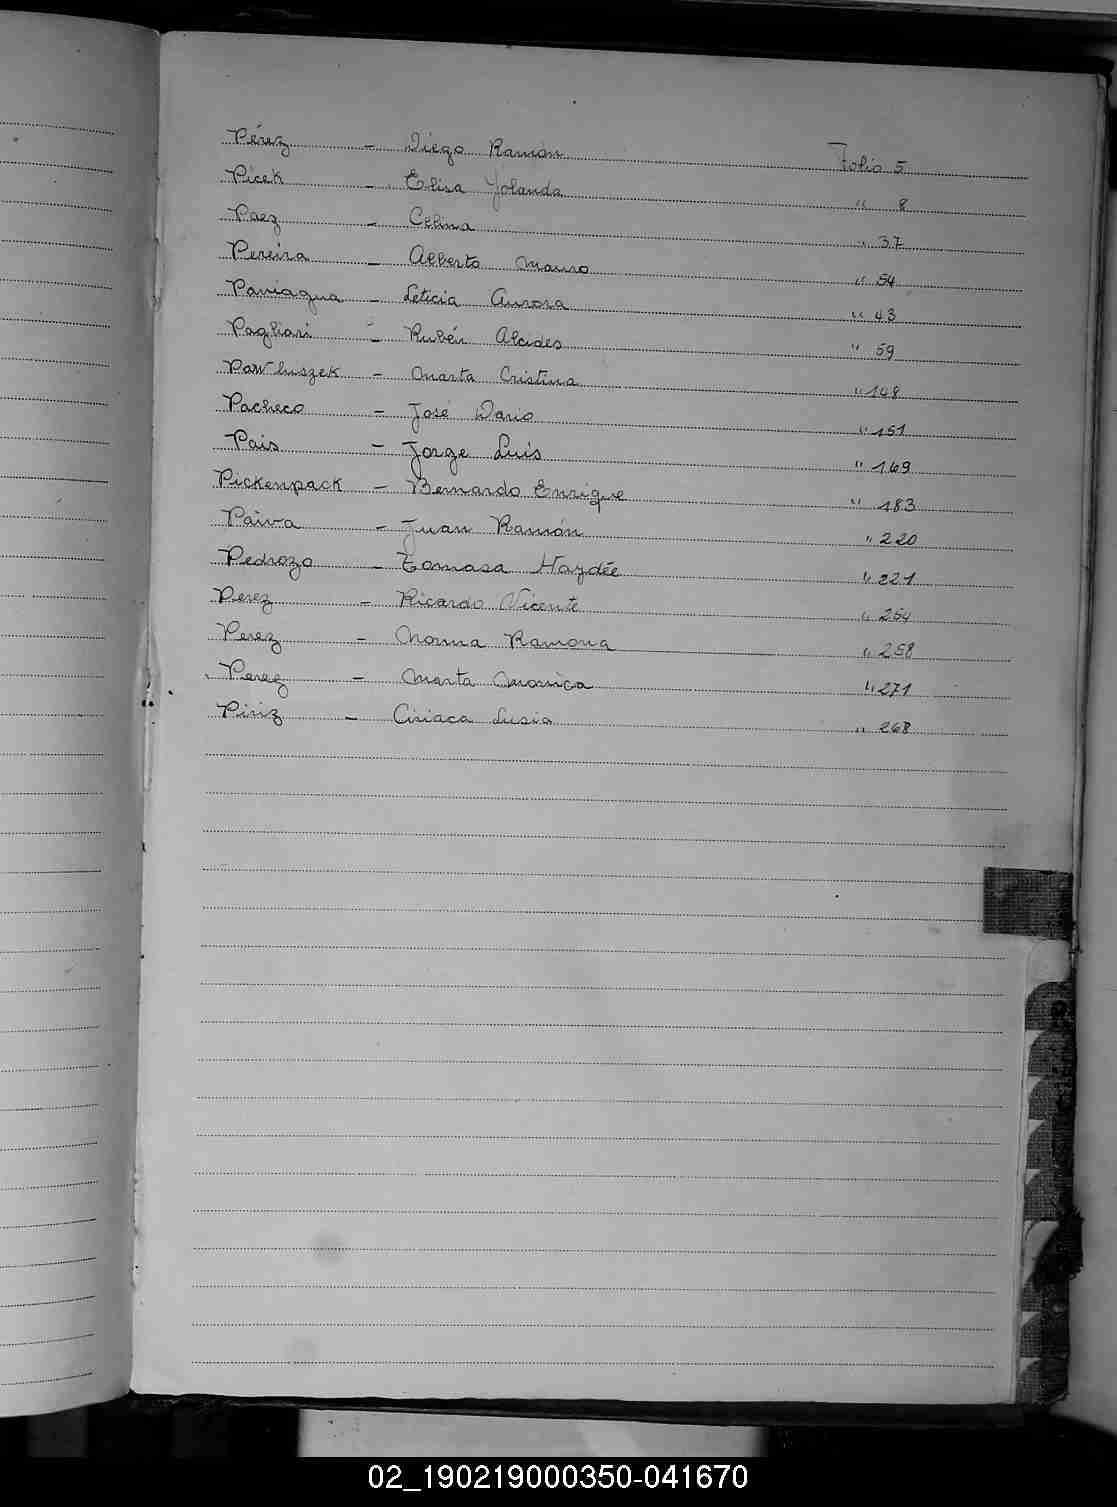 Pérez - Diego Ramón Folio 5
Picek - Elisa Yolanda " 8
Paez - Celina " 37
Pereira - Alberto Mauro " 54
Paniagua - Leticia Aurora " 43
Pagliari - Rubén Alcides " 59
Pawluszek - Marta Cristina " 148
Pacheco - José Dario " 151
Pais - Jorge Luis " 169
Pickenpack - Bernardo Enrique " 183
Paiva - Juan Ramón " 220
Pedrozo - Tomasa Haydée " 221
Perez - Ricardo Vicente " 254
Perez - Norma Ramona " 258
Perez - Marta Monica " 271
Piriz - Ciriaca Lusia " 268
02_190219000350-041670